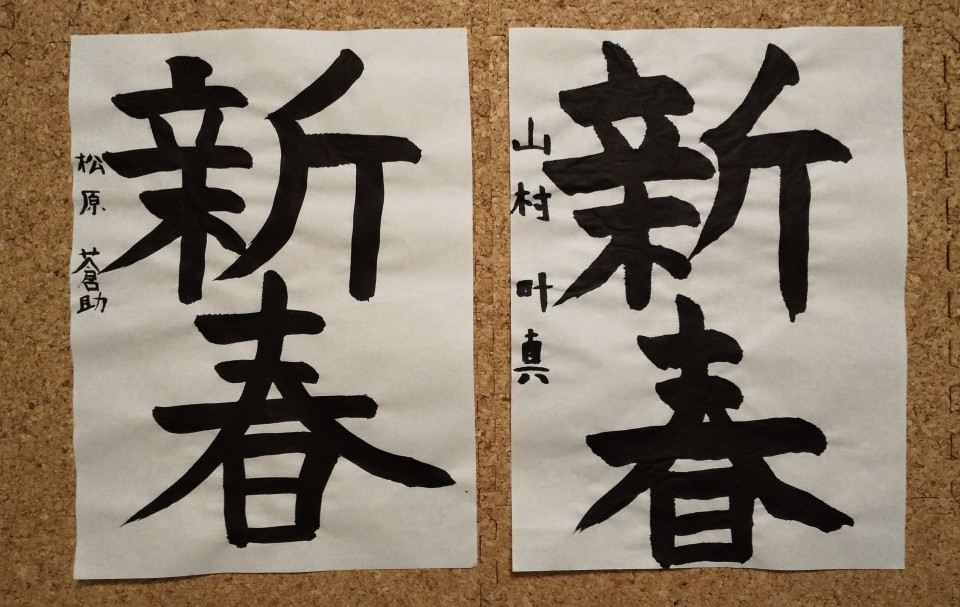 新春
松原 蒼助
新春
山村 叶真